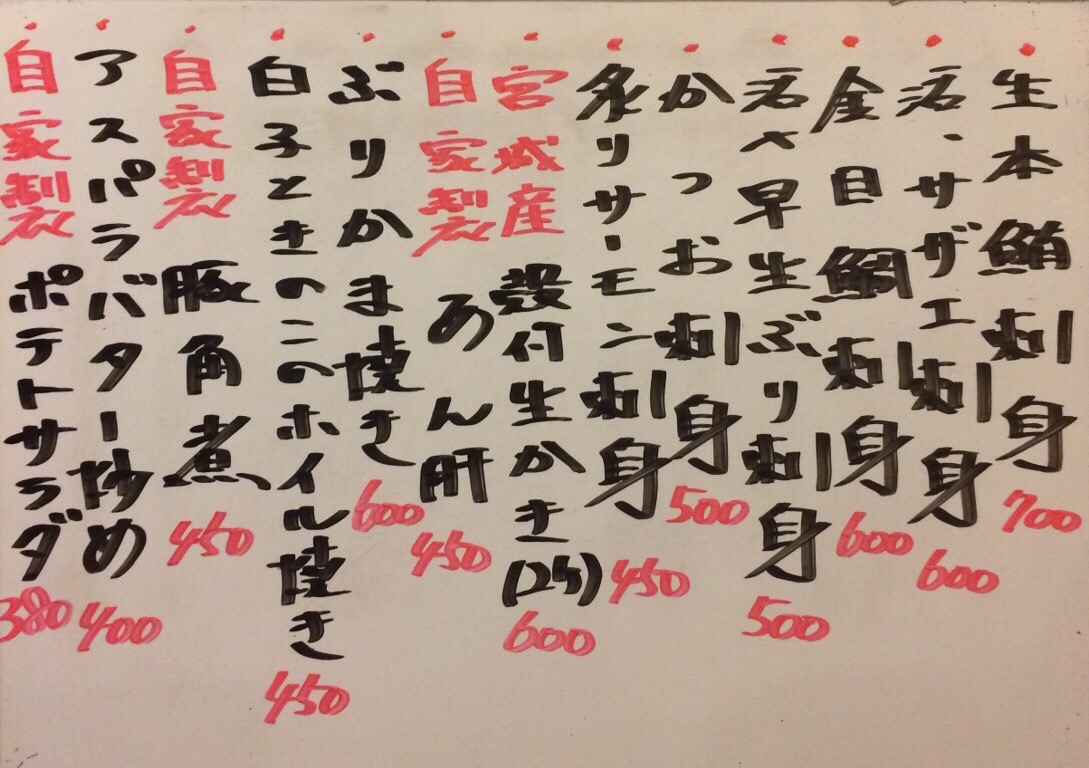 ・生本鮪刺身 700
・活、サザエ刺身 600
・金目鯛刺身 600
・活〆早生ぶり刺身 500
・かつお刺身 500
・炙りサーモン刺身 450
・宮城産 殻付生かき(2ケ) 600
・自家製 あん肝 450
・ぶりかま焼き 600
・白子ときのこのホイル焼き 450
・自家製 豚角煮 450
・アスパラバター炒め 400
・自家製 ポテトサラダ 380